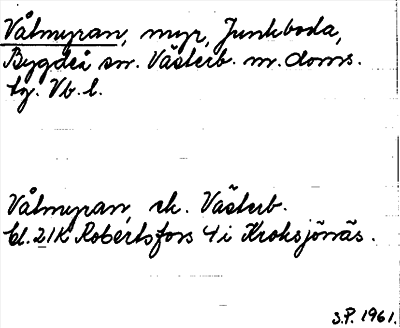 Våtmyran, myr, Junkboda,
Bygdeå sn. Västerb. m. doms.
tg. Vb. l.
Våtmyran, ek. Västerb.
bl. 21K Robertsfors 4 i Kroksjönäs.
S.P. 1961.